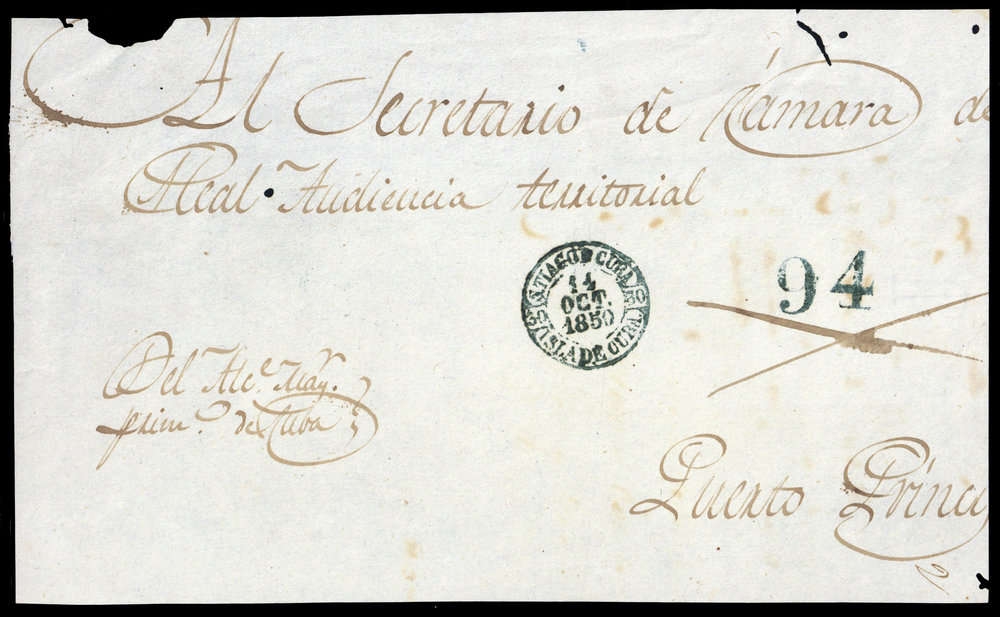 Al Secretario de Cámara de
Real Audiencia territorial
94
SANTIAGO D CUBA
14
OCT.
1850
ISLA DE CUBA
Del Alc.e May.r
prim.o de Cuba
Puerto Princi